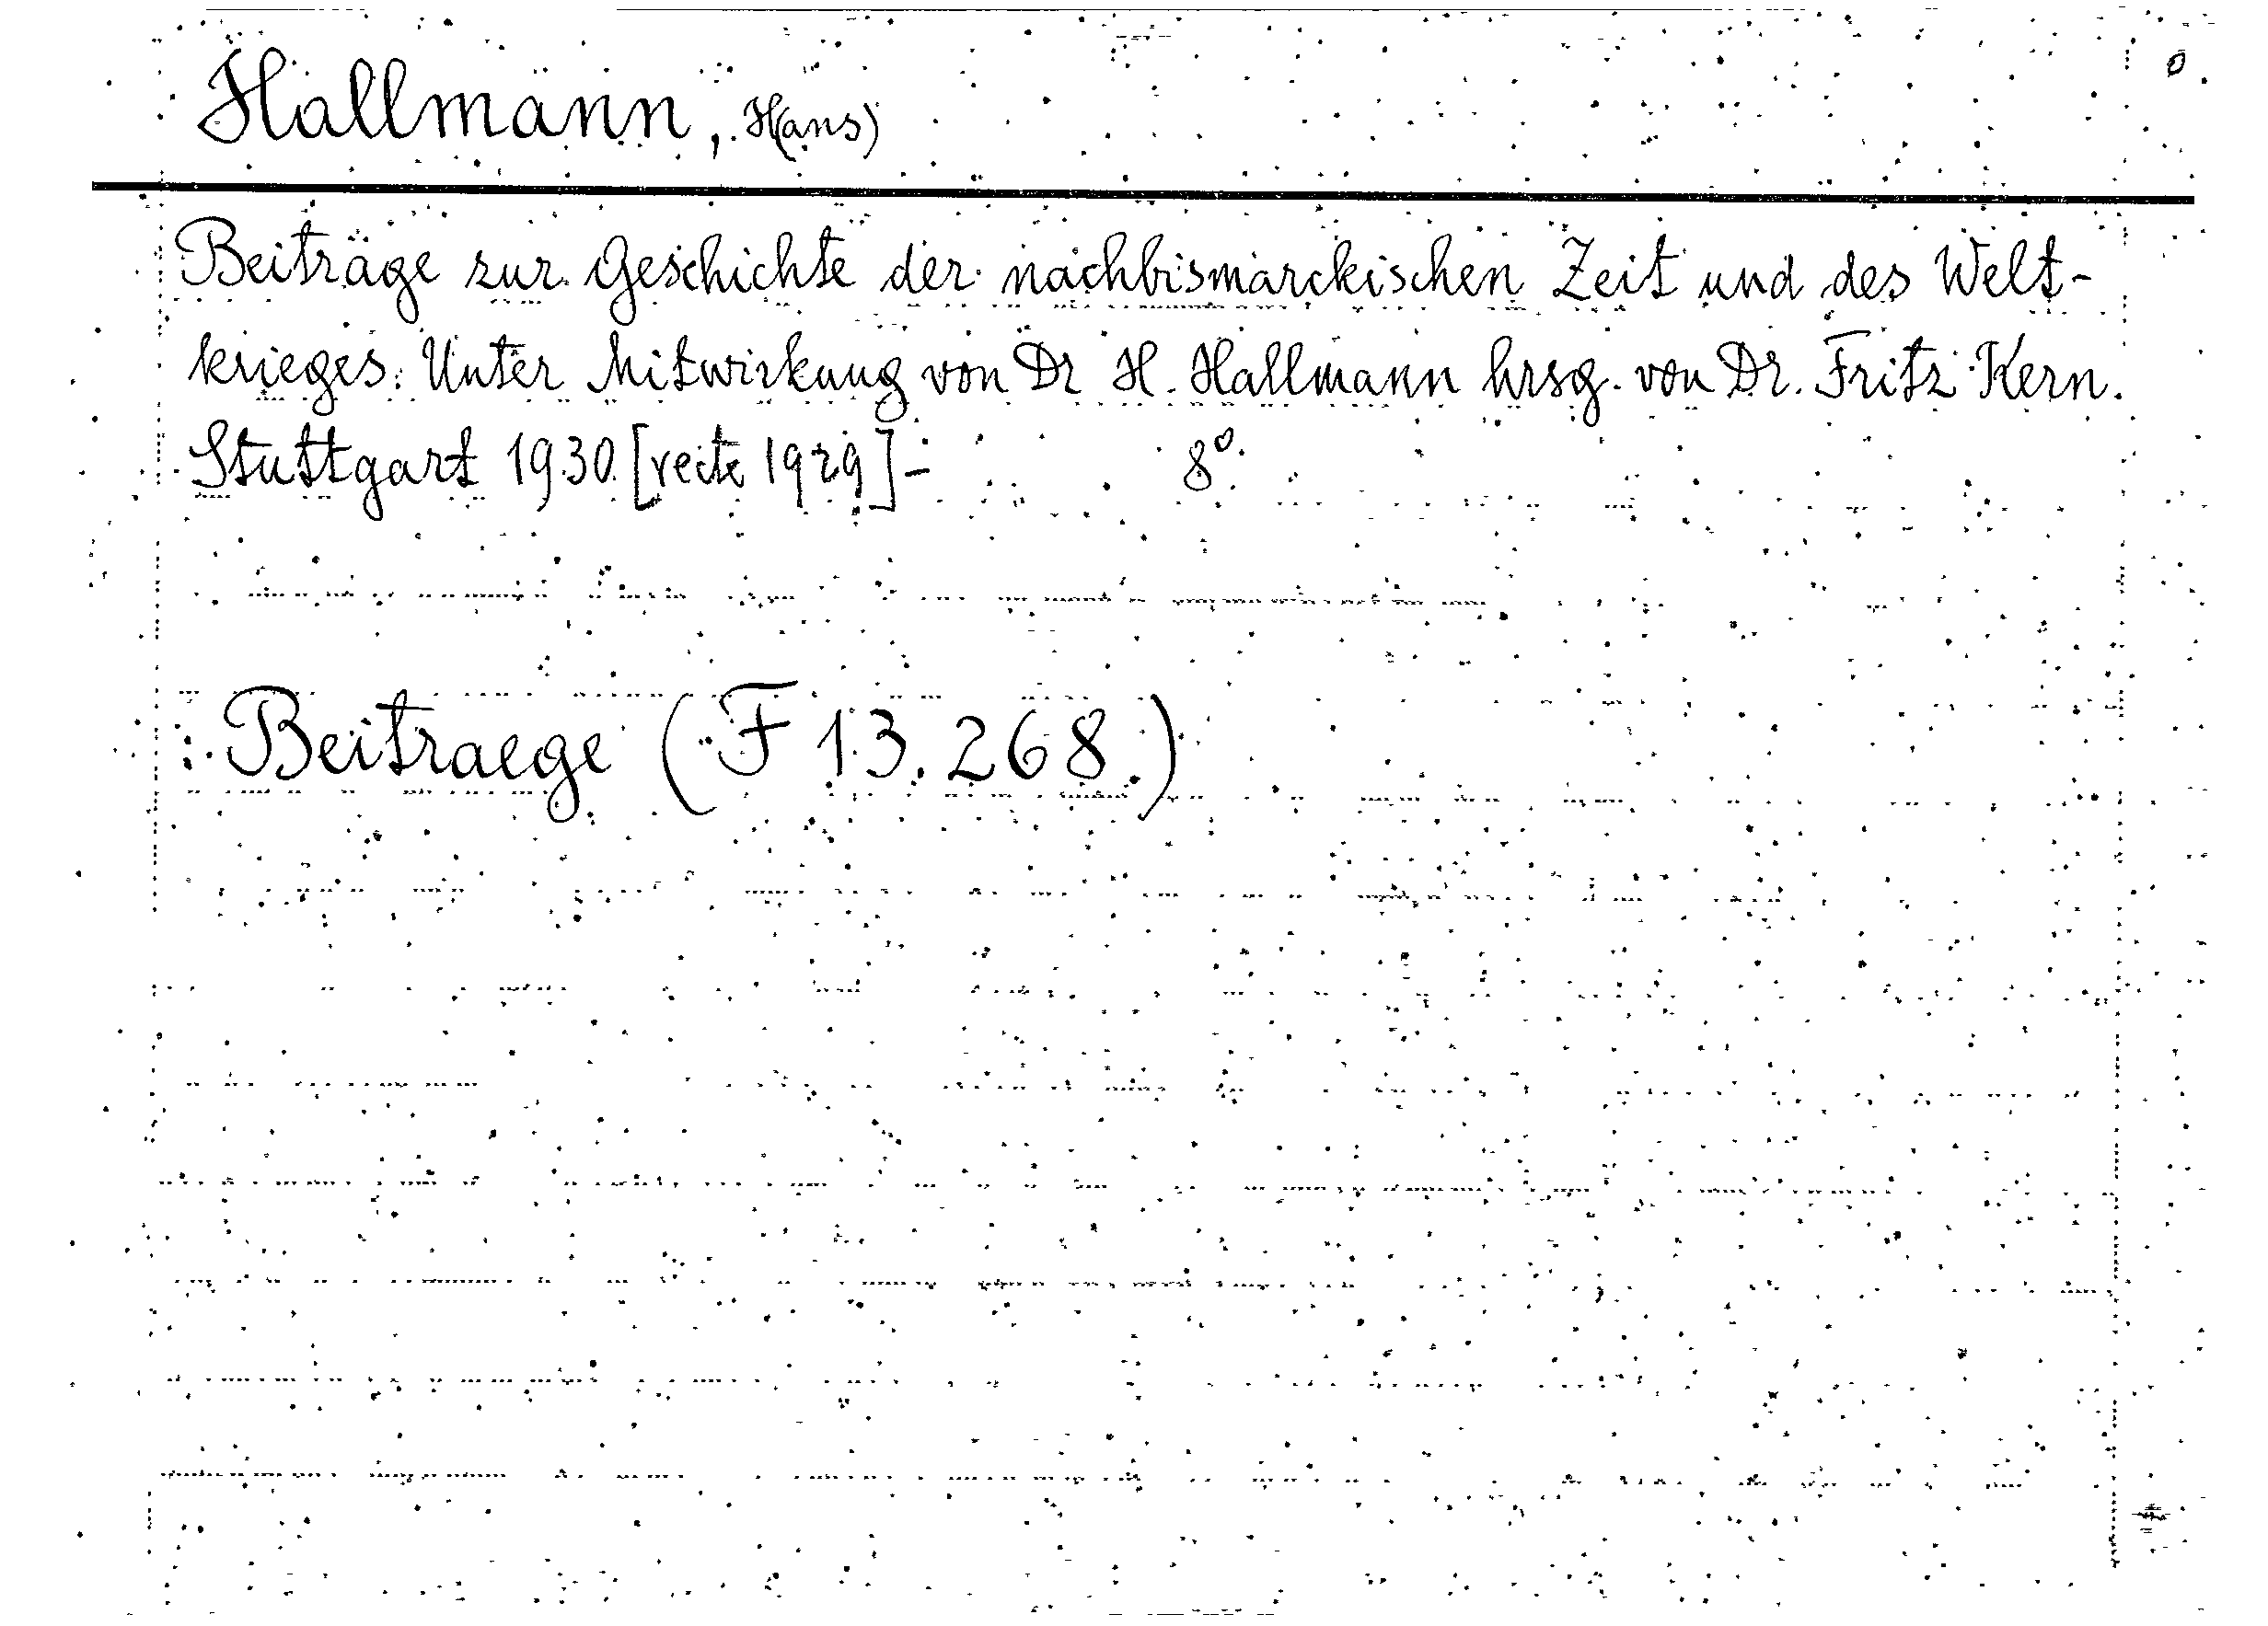 Hallmann, H(ans)
Beiträge zur Geschichte der nachbismarckischen Zeit und des Welt-
krieges. Unter Mitwirkung von Dr H. Hallmann hrsg. von Dr. Fritz Kern.
Stuttgart 1930 [recte 1929]- 8°.
Beitraege (F 13.268.)